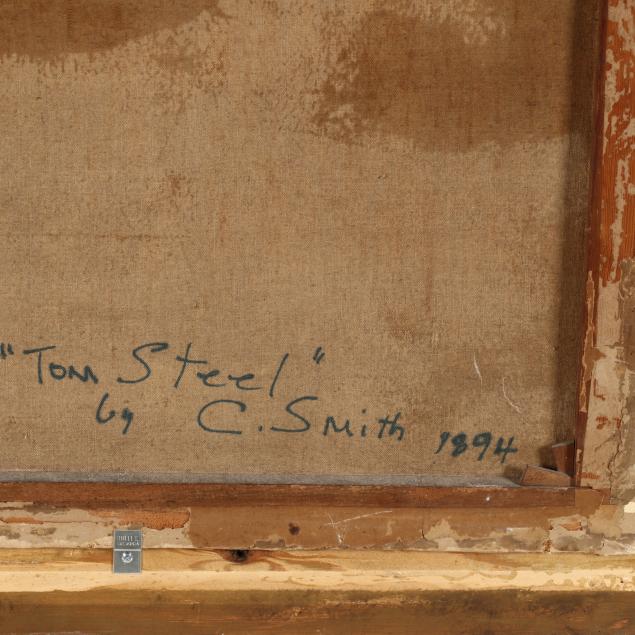 "Tom Steel"
by C. Smith 1894